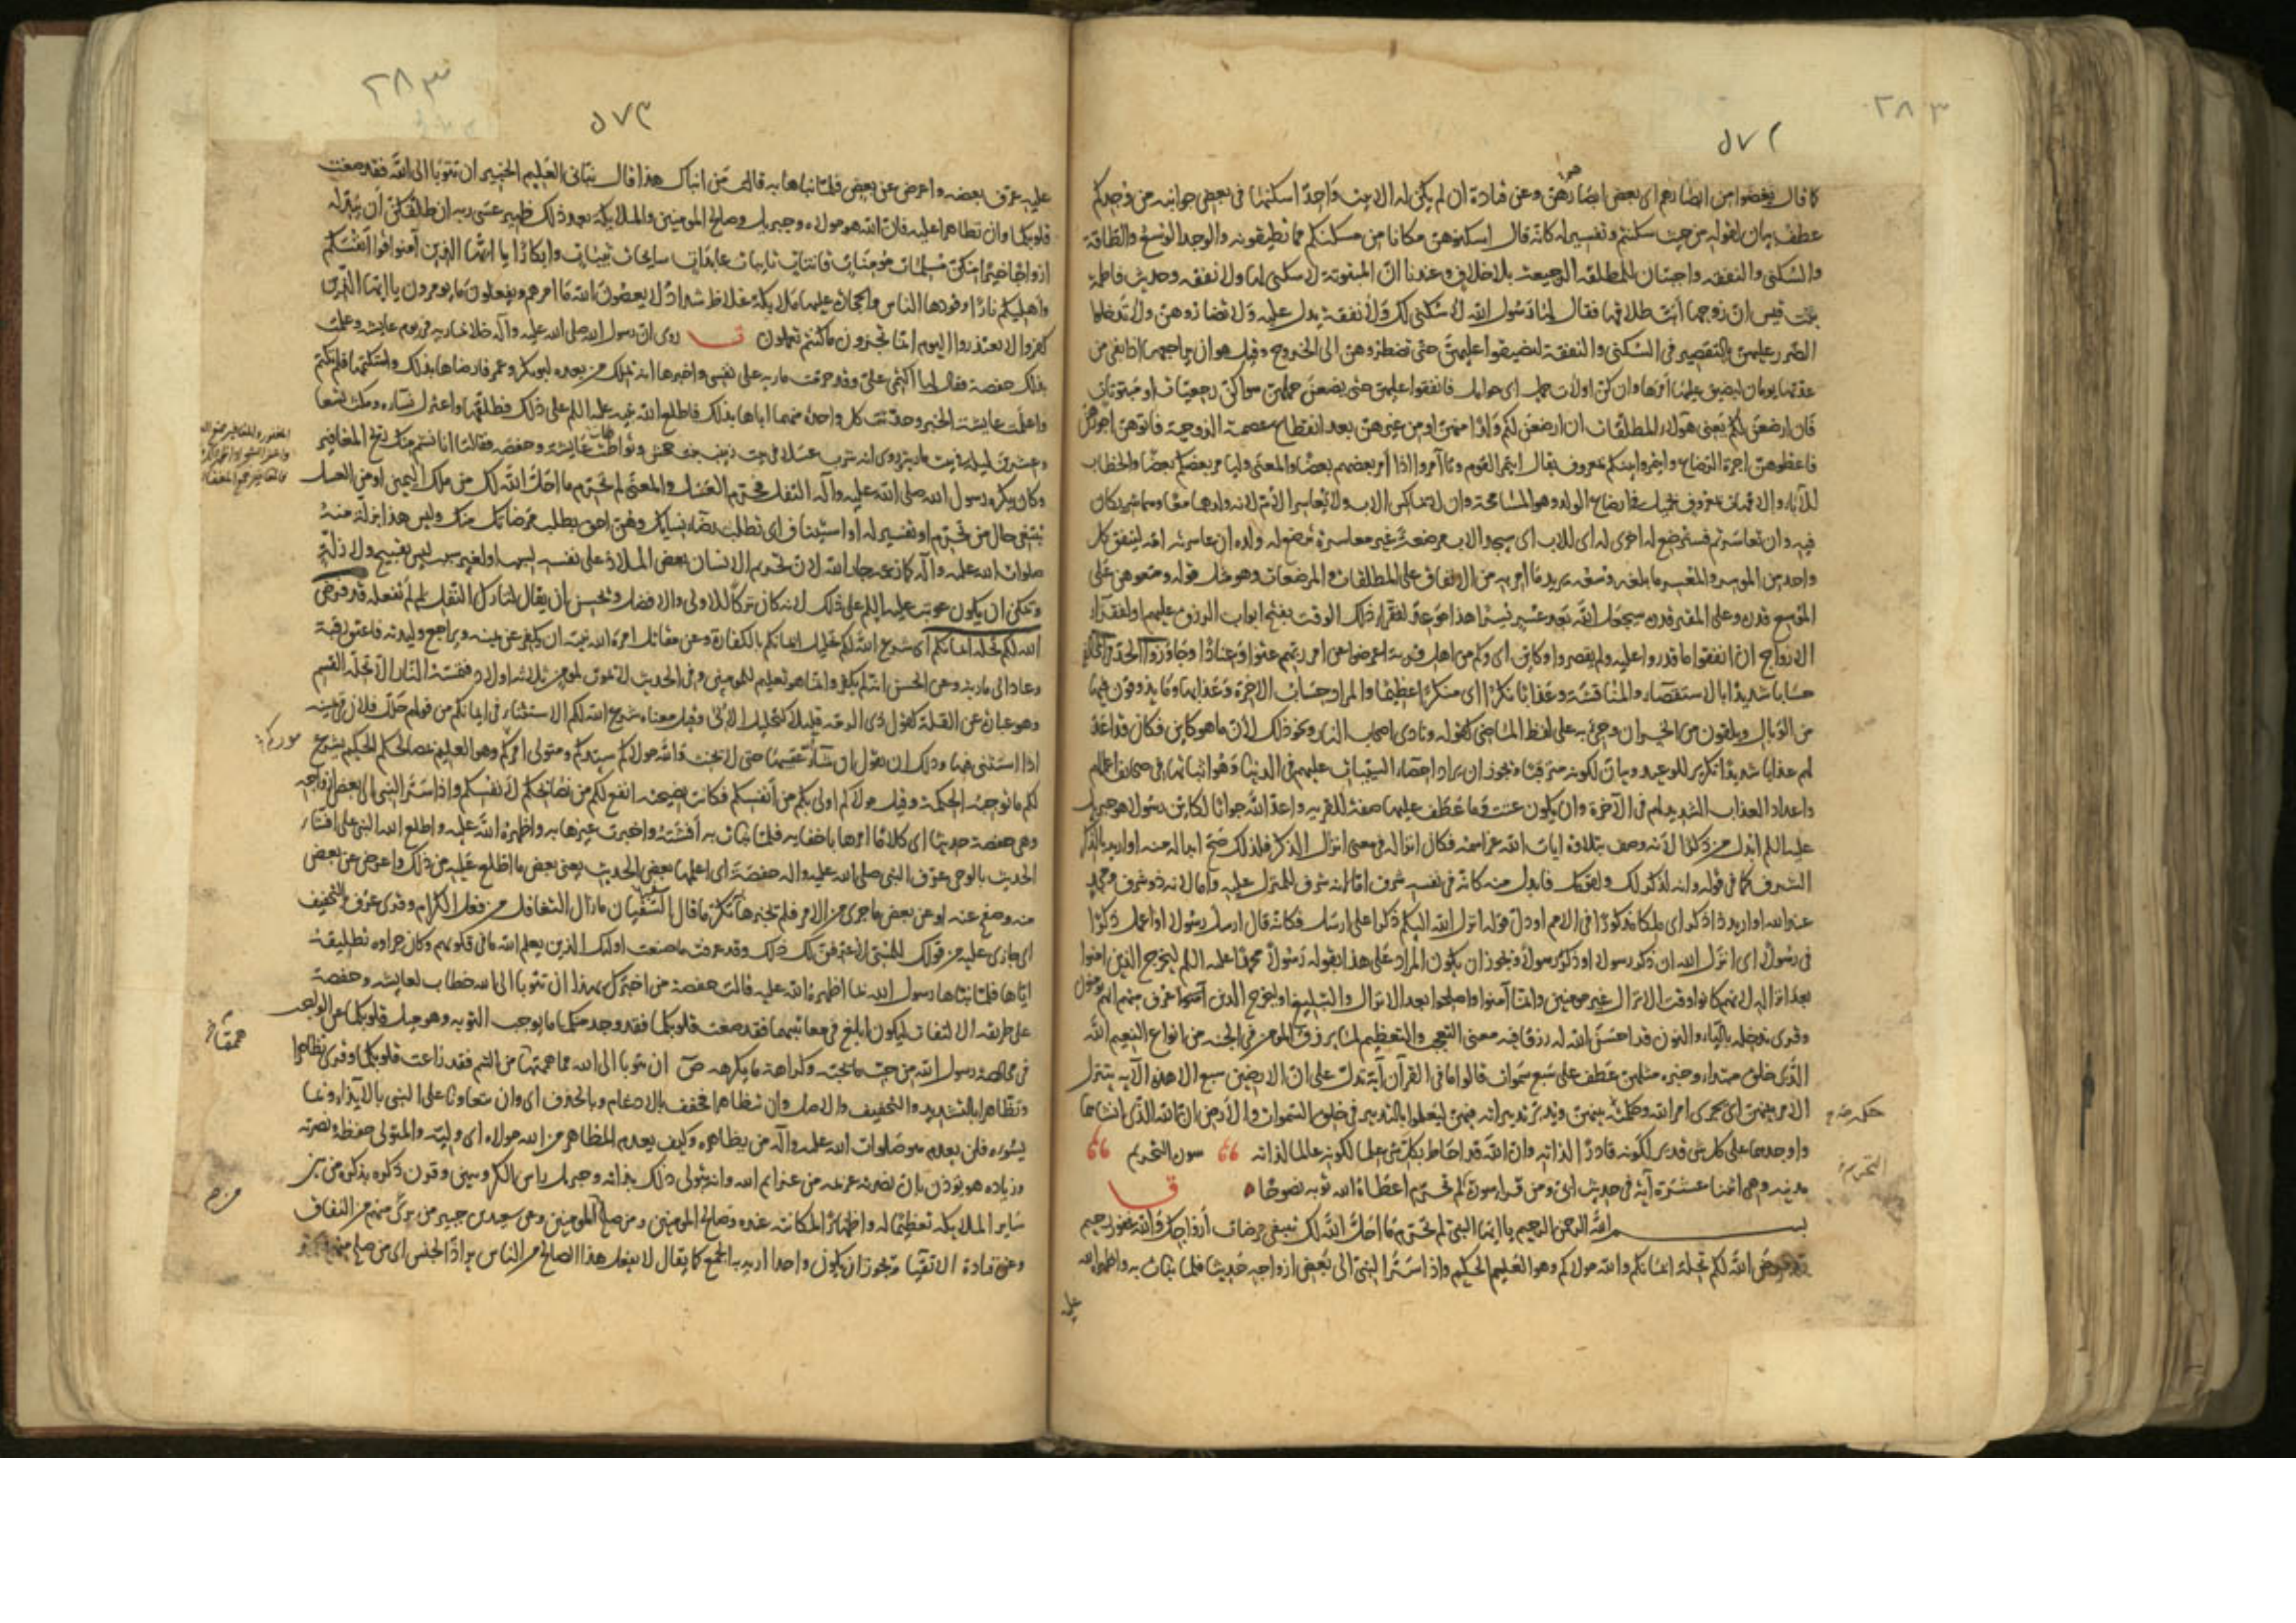 ٢٨٣
٥٧٢
كما قال يغضوا من ابصارهم اى بعض ابصارهم وعن قتادة ان لم يكن له الا بيت واحد اسكنها فى بعض جوانبه من وجدكم
عطف بيان لقوله من حيث سكنتم وتفسير له كانه قال اسكنوهن مكانا من مسكنكم مما تطيقونه والوجد الوسع والطاقة
والسكنى والنفقة واجبتان للمطلقة الرجعية بلا خلاف وعندنا ان المبتوتة لا سكنى لها ولا نفقة وحديث فاطمة
بنت قيس ان زوجها ابت طلاقها فقال لها رسول الله لا سكنى لك ولا نفقة يدل عليه ولا تضاروهن ولا تدخلوا
الضرر عليهن بالتقصير فى السكنى والنفقة لتضيقوا عليهن حتى تضطروهن الى الخروج وقيل هو ان يراجعها اذا بقى من
عدتها يومان ليضيق عليها امرها وان كن اولات حمل اى حوامل فانفقوا عليهن حتى يضعن حملهن سواء كن رجعيات او مبتوتات
فان ارضعن لكم يعنى هؤلاء المطلقات ان ارضعن لكم ولدا منهن او من غيرهن بعد انقطاع عصمة الزوجية فاتوهن اجورهن
فاعطوهن اجرة الرضاع وايتمروا بينكم بمعروف يقال ايتمر القوم وتآمروا اذا امر بعضهم بعضا والمعنى وليامر بعضكم بعضا والخطاب
للآباء والامهات بمعروف بجميل فى ارضاع الولد وهو المسامحة وان لا يماكس الاب ولا تعاسر الام لانه ولدهما معا وهما شريكان
فيه وان تعاسرتم فسترضع له اخرى له اى للاب اى سيجد الاب مرضعة غير معاسرة ترضع له ولده ان عاسرته امه لينفق كل
واحد من الموسر والمعسر ما بلغه وسعه يريد ما امر به من الانفاق على المطلقات والمرضعات وهو مثل قوله ومتعوهن على
الموسع قدره وعلى المقتر قدره سيجعل الله بعد عسر يسرا هذا موعد لفقراء ذلك الوقت بفتح ابواب الرزق عليهم او لفقراء
الازواج ان انفقوا ما قدروا عليه ولم يقصروا وكاين اى وكم من اهل قرية اعرضوا عن امر ربهم عتوا وعنادا وجاوزوا الحد
حسابا شديدا بالاستقصاء والمناقشة وعذابا نكرا اى منكرا عظيما والمراد حساب الاخرة وعذابها وما يذوقون فيها
من الوبال ويلقون من الخسران وجئ به على لفظ الماضى كقوله ونادى اصحاب النار ونحو ذلك لان ما هو كاين فكان قد اعد
لهم عذابا شديدا تكرير للوعيد وبيان لكونه مترقبا ويجوز ان يراد احصاء السيئات عليهم فى الدنيا وهو اثباتها فى صحايف اعمالهم
واعداد العذاب الشديد لهم فى الآخرة وان يكون عتت وما عطف عليها صفة للقرية واعد الله جوابا لكاين رسولا هو جبريل
عليه السلم ابدل من ذكرا لانه وصف بتلاوة ايات الله عز اسمه فكان انزاله فى معنى انزال الذكر فلذلك صح ابداله منه او اريد بالذكر
الشرف كما فى قوله وانه لذكر لك ولقومك فابدل منه كانه فى نفسه شرف اما لانه شرف للمنزل عليه واما لانه ذو شرف ومجد
عند الله او اريد ذا ذكر اى ملكا مذكورا فى الامم او دل قوله انزل الله اليكم ذكرا على ارسل فكانه قال ارسل رسولا او اعمل ذكرا
فى رسولا اى انزل الله ان ذكر رسولا او ذكره رسولا ويجوز ان يكون المراد على هذا بقوله رسولا محمدا عليه السلم ليخرج الذين امنوا
بعد انزاله لانهم كانوا وقت الانزال غير مومنين وانما آمنوا واصلحوا بعد الانزال والتبليغ او ليخرج الذين آمنوا عرف منهم انهم يومنون
وقرى ندخله بالياء والنون قد احسن الله له رزقا فيه معنى التعجب والتعظيم لما يرزق المومن فى الجنة من انواع النعيم الله
الذى خلق مبتداء وخبره مثلهن عطف على سبع سموات قالوا ما فى القرآن آية تدل على ان الارضين سبع الا هذه الآية يتنزل
الامر بينهن اى يجرى امر الله وحكمه بينهن ويدبر تدبيراته فيهن ليعلموا بالتدبير فى خلق السموات والارض ان الله الذى انشاهما
واوجدهما على كل شئ قدير لكونه قادرا لذاته وان الله قد احاط بكل شئ علما لكونه عالما لذاته سورة التحريم
التحريم
مدنية وهى اثنتا عشرة آية فى حديث ابى ومن قراء سورة لم تحرم اعطاه الله توبة نصوحا
بسم الله الرحمن الرحيم يا ايها النبى لم تحرم ما احل الله لك تبتغى مرضات ازواجك والله غفور رحيم
قد فرض الله لكم تحلة ايمانكم والله مولاكم وهو العليم الحكيم واذ اسر النبى الى بعض ازواجه حديثا فلما نبات به واظهره الله
عليه
٢٨٣
٥٧٣
عليه عرف بعضه واعرض عن بعض فلما نباها به قالت من انباك هذا قال نبانى العليم الخبير ان تتوبا الى الله فقد صغت
قلوبكما وان تظاهرا عليه فان الله هو موليه وجبريل وصالح المومنين والملايكة بعد ذلك ظهير عسى ربه ان طلقكن ان يبدله
ازواجا خيرا منكن مسلمات مومنات قانتات تايبات عابدات سايحات ثيبات وابكارا يا ايها الذين آمنوا قوا انفسكم
واهليكم نارا وقودها الناس والحجارة عليها ملايكة غلاظ شداد لا يعصون الله ما امرهم ويفعلون ما يومرون يا ايها الذين
كفروا لا تعتذروا اليوم انما تجزون ما كنتم تعملون روى ان رسول الله صلى الله عليه وآله خلا بمارية فى يوم عايشة وعلمت
بذلك حفصة فقال لها اكتمى على وقد حرمت مارية على نفسى واخبرها انه يملك من بعده ابو بكر وعمر فارضاها بذلك واستكتمها فلم تكتم
واعلمت عايشة الخبر وحدثت كل واحدة منهما اباها بذلك فاطلع الله نبيه عليه السلم على ذلك فطلقها واعتزل نساءه ومكث تسعا
وعشرين ليلة فى بيت مارية وروى انه شرب عسلا فى بيت زينب بنت جحش وتواطات عايشة وحفصة فقالتا انا نشم منك ريح المغافير
وكان يكره رسول الله صلى الله عليه وآله التفل فحرم العسل والمعنى لم تحرم ما احل الله لك من ملك اليمين او من العسل
تبتغى حال من تحرم او تفسير له او استيناف اى تطلب رضاء نسايك وهن احق بطلب مرضاتك منك وليس هذا بزلة منه
صلوات الله عليه وآله كما زعم جار الله لان تحريم الانسان بعض الملاذ على نفسه لسبب او لغير سبب ليس بقبيح ولا زلة
ويمكن ان يكون عوتب عليه السلم على ذلك لانه كان تركا للاولى والافضل ويحسن ان يقال لتارك النفل لم لم تفعله قد فرض
الله لكم تحلة ايمانكم اى شرع الله لكم تحليل ايمانكم بالكفارة وعن مقاتل امره الله نبيه ان يكفر عن يمينه ويراجع وليدته فاعتق رقبة
وعاد الى مارية وعن الحسن انه لم يكفر وانما هو تعليم للمومنين وفى الحديث لا يموت لمومن ثلاثة اولاد فتمسه النار الا تحلة القسم
وهو عبارة عن القلة كقول ذى الرمة قليلا كتحليل الالى وقيل معناه شرع الله لكم الاستثناء فى ايمانكم من قولهم حلل فلان فى يمينه
اذا استثنى فيها وذلك ان يقول ان شاء الله عقيبها حتى لا يحنث والله مولاكم سيدكم ومتولى امركم وهو العليم بمصالحكم الحكيم يشرع
لكم ما توجبه الحكمة وقيل مولاكم اولى بكم من انفسكم فكانت نصيحته انفع لكم من نصايحكم لانفسكم واذ اسر النبى الى بعض ازواجه
وهى حفصة حديثا اى كلاما امرها باخفايه فلما نبات به افشته واخبرت غيرها به واظهره الله عليه واطلع الله النبى على افشاء
الحديث بالوحى عرف النبى صلى الله عليه واله حفصة اى اعلمها بعض الحديث يعنى بعض ما اطلع عليه من ذلك واعرض عن بعض
منه وصفح عنه او عن بعض ما جرى من الامر فلم يخبرها تكرما قال سفيان ما زال التغافل من فعل الكرام وقرى عرف بالتخفيف
اى جازى عليه من قولك للمسئ لاعرفن لك ذلك وقد عرفت ما صنعت اولئك الذين يعلم الله ما فى قلوبهم وكان جزاوه تطليقه
اياها فلما نباها رسول الله بما اظهره الله عليه قالت حفصة من اخبرك بهذا ان تتوبا الى الله خطاب لعايشة وحفصة
على طريقة الالتفات ليكون ابلغ فى معاتبتهما فقد صغت قلوبكما فقد وجد منكما ما يوجب التوبة وهو ميل قلوبكما عن الواجب
فى مخالصة رسول الله من حب ما يحبه وكراهة ما يكرهه ان تتوبا الى الله مما هممتما من السم فقد زاغت قلوبكما وقرى تظاهرا
وتظاهرا بالتشديد والتخفيف والاصل وان تتظاهرا فخفف بالادغام وبالحذف اى وان تتعاونا على النبى بالايذاء وبما
يسوءه فلن يعدم هو صلوات الله عليه وآله من يظاهره وكيف يعدم المظاهر من الله مولاه اى وليه والمتولى حفظه ونصرته
وزيادة هو يوذن بان نصرته عزيمة من عزايم الله وانه يتولى ذلك بذاته وجبريل راس الكروبيين وقرن ذكره بذكره من بين
ساير الملايكة تعظيما له واظهارا لمكانته عنده وصالح المومنين ومن صلح من المومنين وعن سعيد بن جبير من برئ منهم من النفاق
وعن قتادة الانبياء ويجوز ان يكون واحدا اريد به الجمع كما يقال لا يفعل هذا الصالح من الناس يراد الجنس اى من صلح منهم